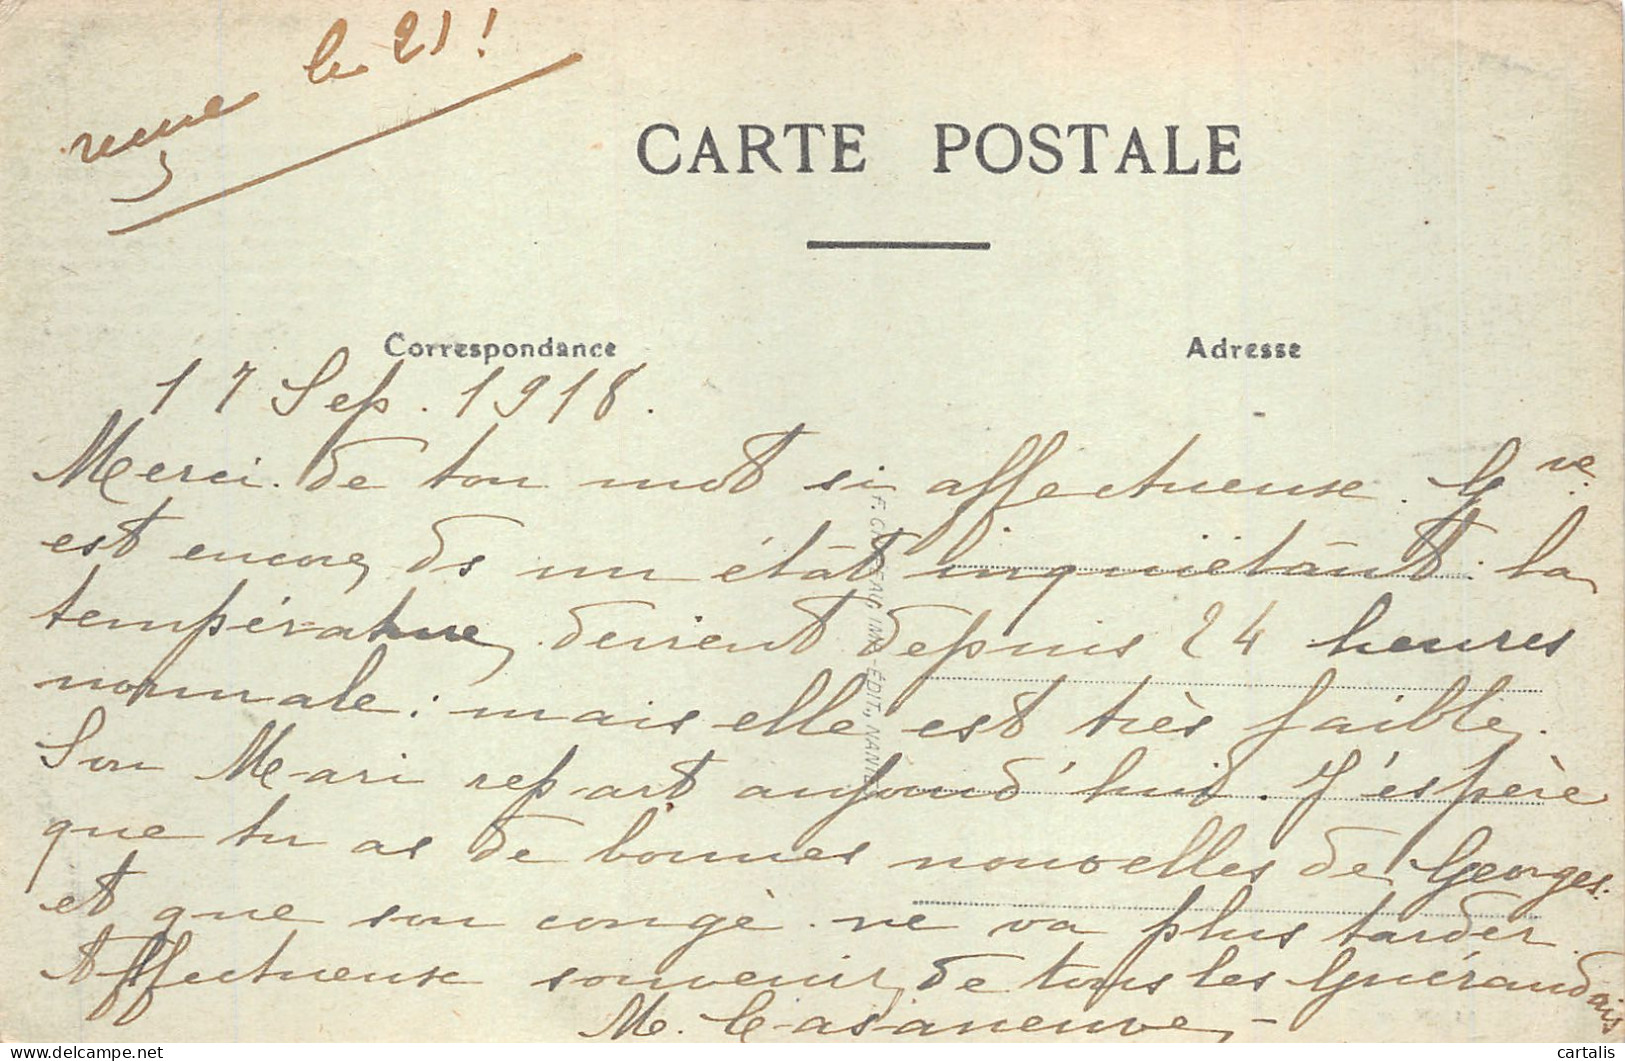 reçue le 21!
CARTE POSTALE
Correspondance
Adresse
17 Sep. 1918.
Merci de ton mot si affectueux. Gve
est encore ds un état inquiétant : la
température devient depuis 24 heures
normale : mais elle est très faible.
Son Mari repart aujourd'hui. J'espère
que tu as de bonnes nouvelles de Georges.
et que son congé ne va plus tarder.
Affectueux souvenir de tous les Guérandais
M. Casaneuve -
IMP.-ÉDIT., NANTES
cartalis